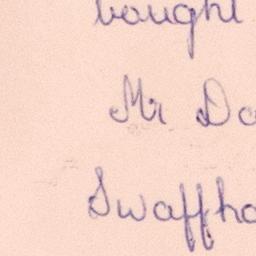 bought
Mr Do
Swaffha